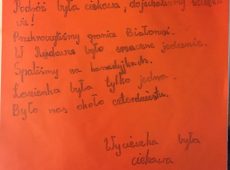 Podróż była ciekawa, dojechaliśmy
Przekroczyliśmy granicę Białorusi.
W było smaczne jedzenie.
Spaliśmy na
Łazienka była tylko jedna.
Było nas około czterdziestu.
Wycieczka była
ciekawa